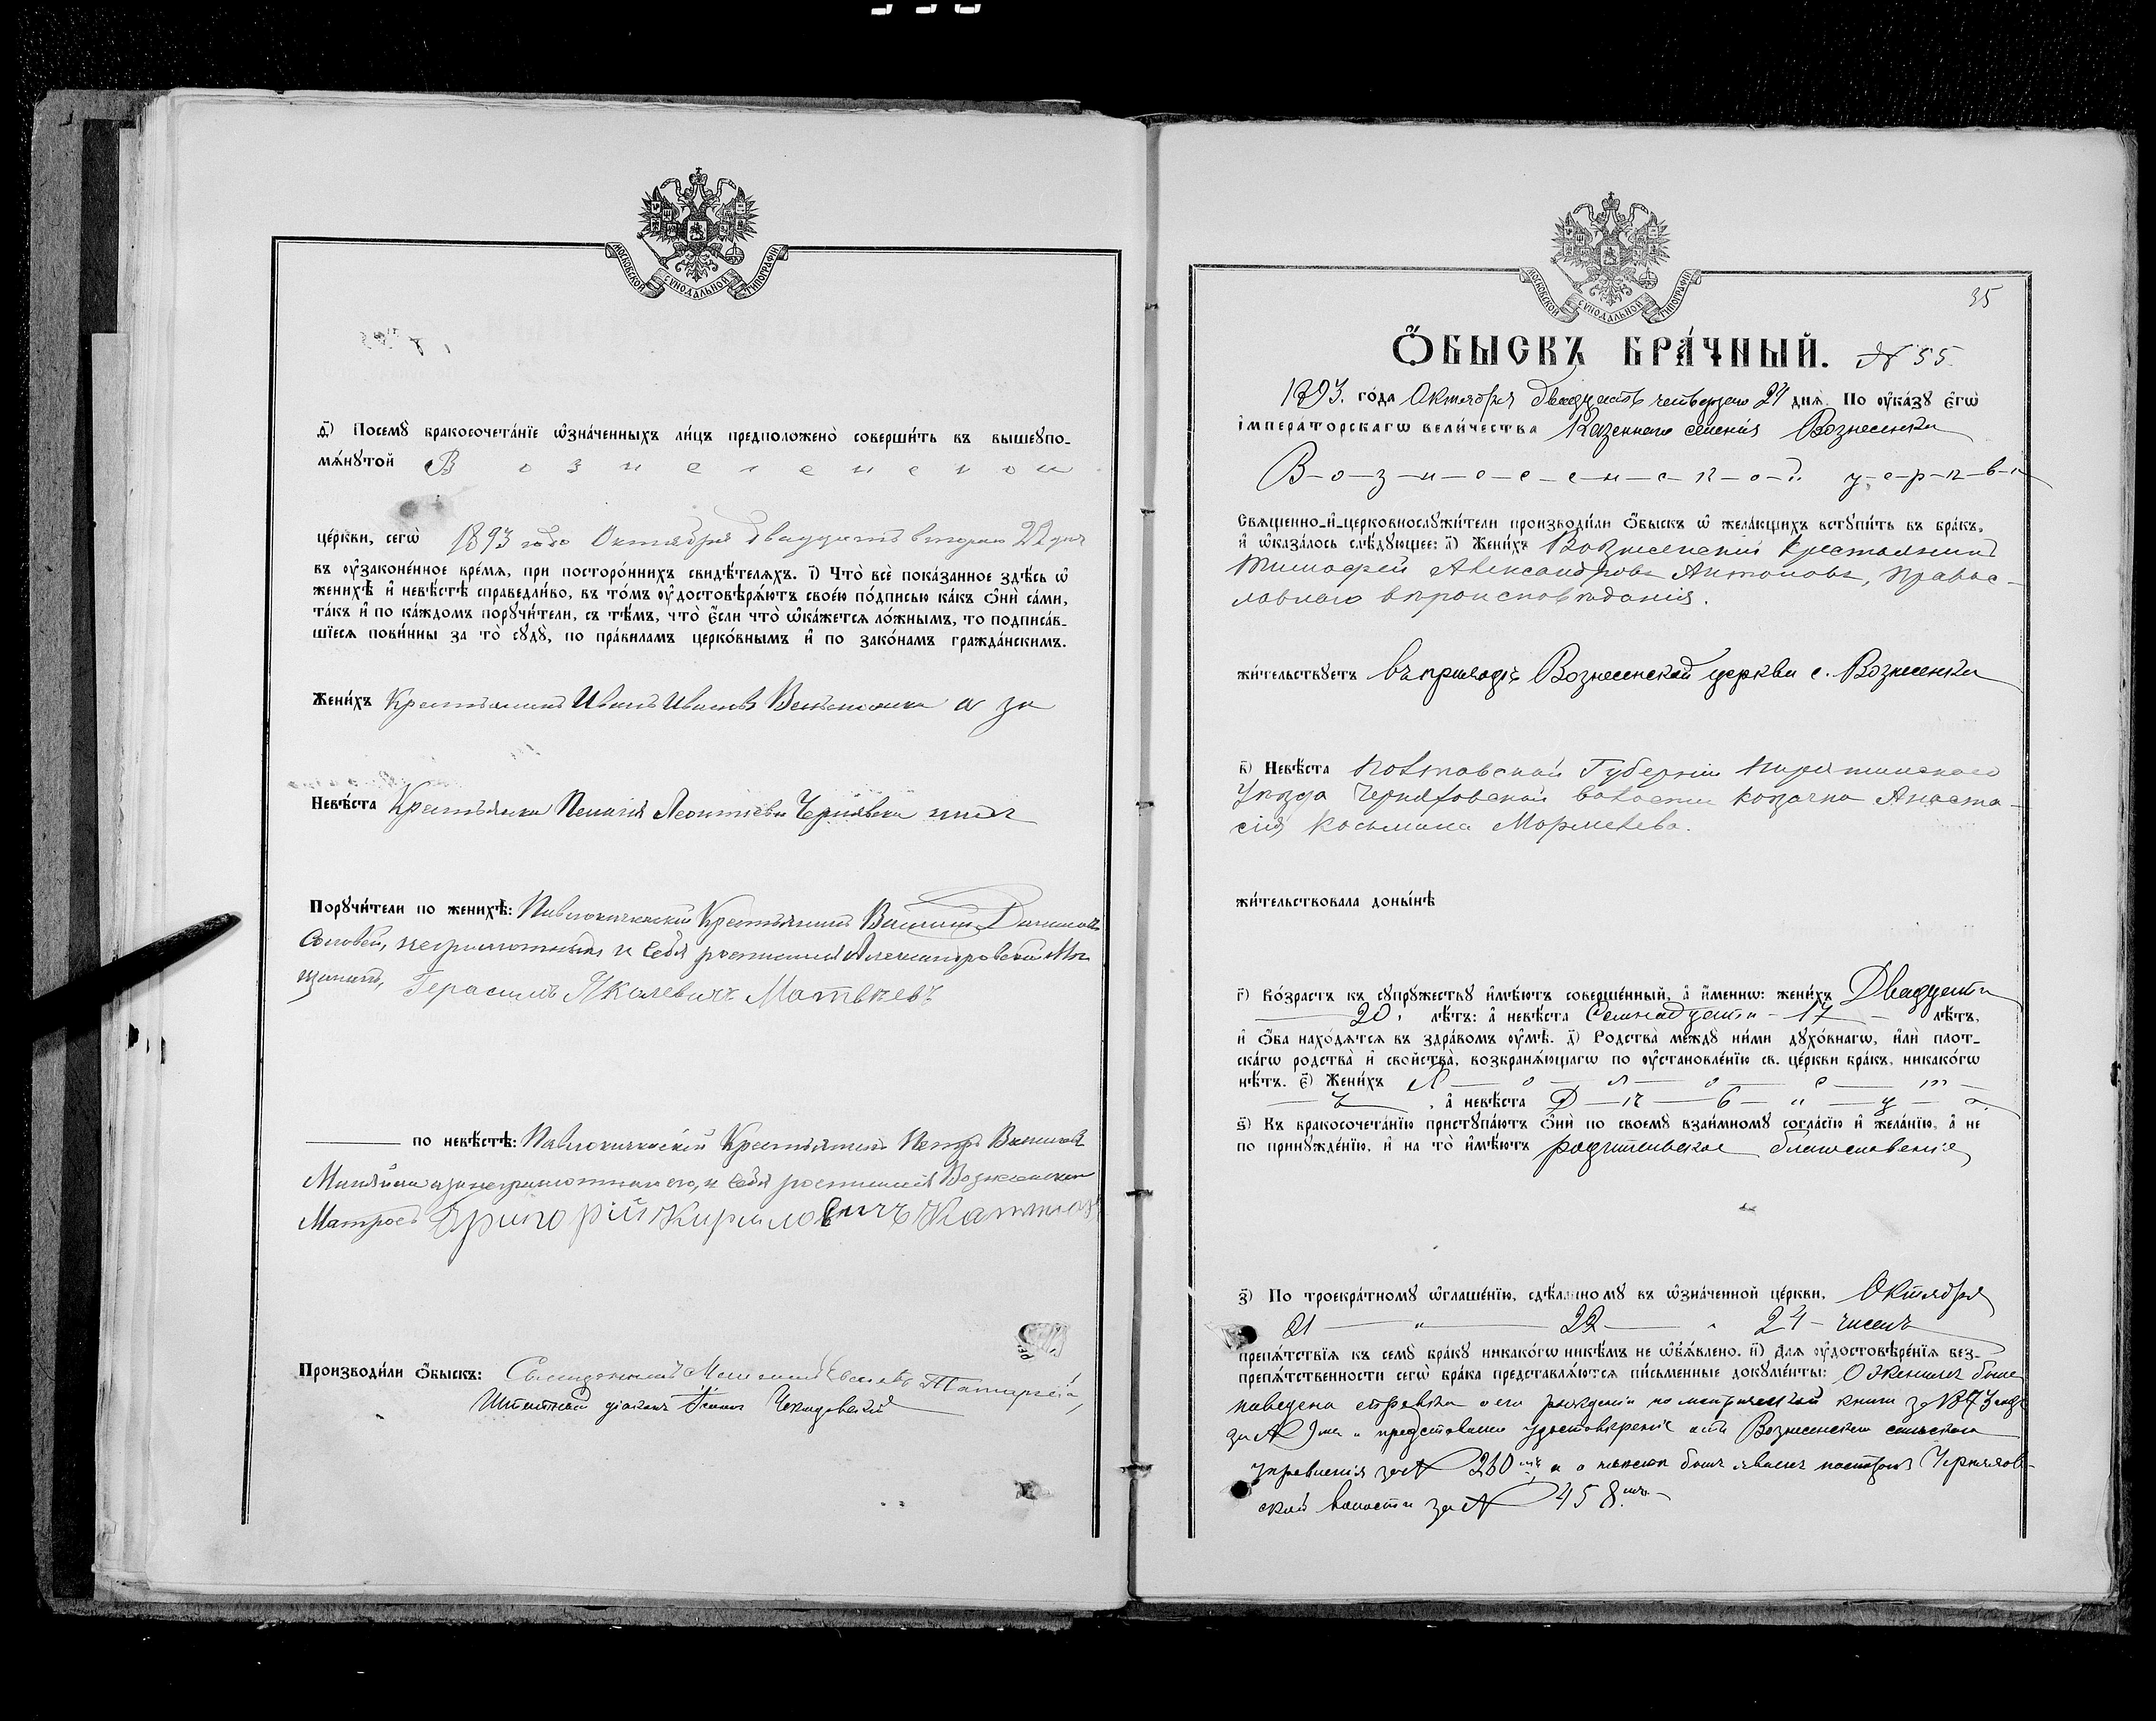 МОСКОВСКОЙ СѴНОДАЛЬНОЙ ТИПОГРАФІИ
ѳ҃) Посемꙋ бракосочета́нїе ѡ҆зна́ченныхъ ли́цъ предположено̀ соверши́ть въ вышеꙋпо-
мѧ́нꙋтой В о з н е с е н с к о й
це́ркви, сегѡ̀ 1893 года Октября двадцать втораго 22 дня
въ ᲂу҆зако́ненное вре́мѧ, при посторо́ннихъ свидѣ́телѧхъ. і҃) Что̀ всѐ пока́занное здѣ́сь ѡ҆
женихѣ̀ и҆ невѣ́стѣ справедли́во, въ то́мъ ᲂу҆достовѣрѧ́ютъ свое́ю по́дписью ка́къ ѻ҆нѝ са́ми,
та́къ и҆ по ка́ждомъ порꙋчи́тели, съ тѣ́мъ, что̀ є҆́сли что̀ ѡ҆ка́жется ло́жнымъ, то подписа́в-
шїеся пови́нны за то̀ сꙋдꙋ̀, по пра́виламъ церко́внымъ и҆ по зако́намъ гражда́нскимъ.
Жени́хъ Крестьянинъ Иванъ Ивановъ а за
Невѣ́ста Крестьянка Пелагія Леонтіева Чернявская
Порꙋчи́тели по женихѣ̀: Крестьянинъ Василій
Соловей, неграмотный и себя росписался Александровскій Мѣ-
щанинъ, Герасимъ Яковлевичъ Матвѣевъ
по невѣ́стѣ: Крестьянинъ Петръ
а за неграмотнаго его, и себя росписался Вознесенскій
Матросъ Григорій Кириловичъ
Производи́ли ѻ҆́быскъ: Священникъ
Штатный діаконъ Іоаннъ
МОСКОВСКОЙ СѴНОДАЛЬНОЙ ТИПОГРАФІИ
35
Ѻ҆́БЫСКЪ БРА́ЧНЫЙ. № 55
1893. го́да Октября двадцать четвертаго 24 днѧ̀. По ᲂу҆ка́зꙋ є҆гѡ̀
і҆мпера́торскагѡ вели́чества Казеннаго селенія Вознесенки
В-о-з-н-е-с-е-н-с-к-о-й ц-е-р-к-в-и
Свѧще́нно-и҆-церковнослꙋжи́тели производи́ли ѻ҆́быскъ ѡ҆ жела́ющихъ встꙋпи́ть въ бра́къ,
и҆ ѡ҆каза́лось слѣ́дꙋющее: а҃) Жени́хъ Вознесенскій Крестьянинъ
Тимофей Александровъ Антоновъ, право-
славнаго вѣроисповѣданія.
жи́тельствꙋетъ въ приходѣ Вознесенской церкви с. Вознесенки
в҃) Невѣ́ста Полтавской Губерніи Пирятинскаго
Уѣзда Черняховской волости козачка Анаста-
сія Косьмина
жи́тельствовала доны́нѣ
г҃) Во́зрастъ къ сꙋпрꙋ́жествꙋ и҆мѣ́ютъ соверше́нный, а҆ и҆́меннѡ: жени́хъ Двадцати
20, лѣ́тъ: а҆ невѣ́ста Семнадцати - 17 - лѣ́тъ,
и҆ ѻ҆́ба нахо́дятсѧ въ здра́вомъ ᲂу҆мѣ̀. д҃) Родства̀ междꙋ̀ ни́ми дꙋхо́внагѡ, и҆лѝ пло́т-
скагѡ родства̀ и҆ свойства̀, возбранѧ́ющагѡ по ᲂу҆становле́нїю св. це́ркви бра́къ, никако́гѡ
нѣ́тъ. є҃) Жени́хъ Х о л о с т
ъ, а҆ невѣ́ста Д ѣ в и ц а
ѕ҃) Къ бракосочета́нїю пристꙋпа́ютъ ѻ҆нѝ по своемꙋ̀ взаи́мномꙋ согла́сїю и҆ жела́нїю, а҆ не
по принꙋжде́нїю, и҆ на то̀ и҆мѣ́ютъ родительское благословеніе
з҃) По троекра́тномꙋ ѡ҆глаше́нїю, сдѣ́ланномꙋ въ ѡ҆зна́ченной це́ркви, Октября
21 " 22 " 24 - чиселъ
препѧ́тствїѧ къ семꙋ̀ бра́кꙋ никако́гѡ никѣ́мъ не ѡ҆б̾ѧ́влено. и҃) Длѧ̀ ᲂу҆достовѣре́нїѧ без-
препѧ́тственности сегѡ̀ бра́ка представлѧ́ютсѧ пи́сьменные докꙋме́нты: О женихѣ была
наведена справка о его рожденіи по метрической книги за 1873 годъ
за № и представлено удостовѣреніе отъ Вознесенскаго сельскаго
управленія за № 260 и о невѣстѣ былъ Черняхов-
ской волости за № 458